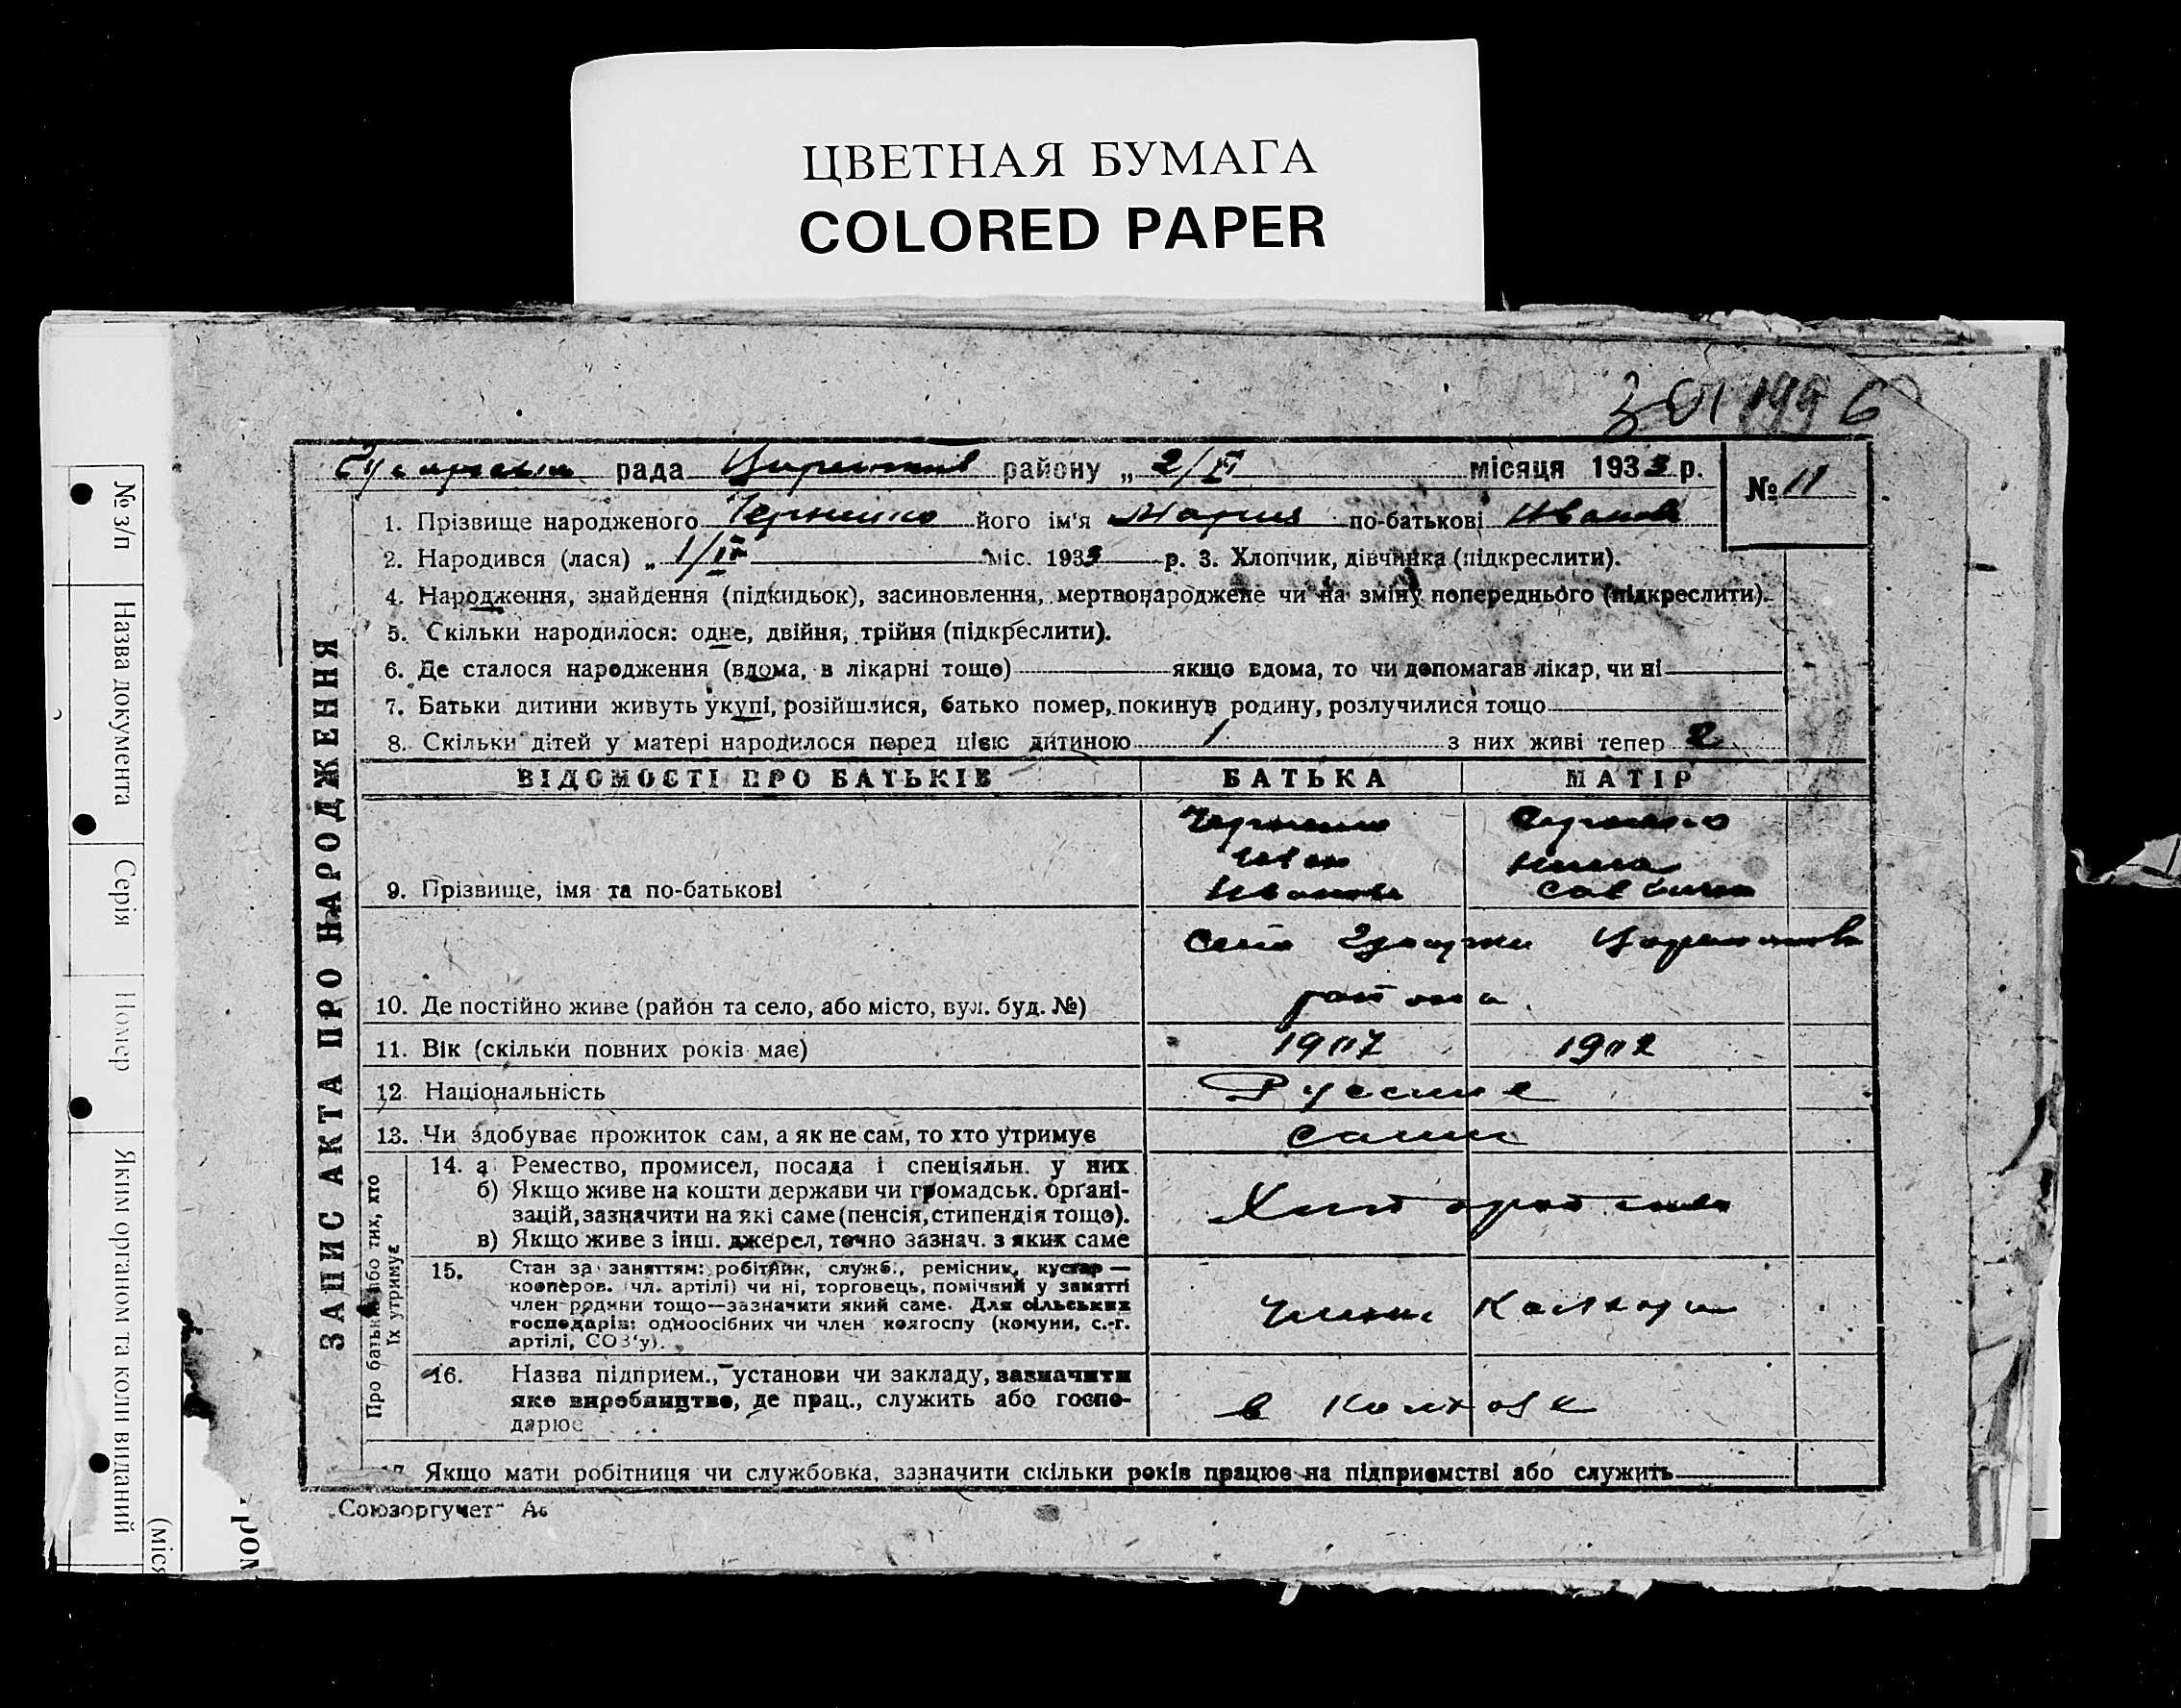 ЦВЕТНАЯ БУМАГА
COLORED PAPER
1996
рада района „ 2/ місяця 1933 р.
№ 11
1. Прізвище народженого Черненко його ім'я Мария по-батькові Иванов
2. Народився (лася) „ 1/ міс. 1933 р. 3. Хлопчик, дівчинка (підкреслити).
4. Народження, знайдення (підкидьок), засиновлення, мертвонароджене чи на зміну попереднього (підкреслити).
5. Скільки народилося: одне, двійня, трійня (підкреслити).
6. Де сталося народження (вдома, в лікарні тощо) якщо вдома, то чи допомагав лікар, чи ні
7. Батьки дитини живуть укупі, розійшлися, батько помер, покинув родину, розлучилися тощо
8. Скільки дітей у матері народилося перед цією дитиною 1 з них живі тепер 2
ВІДОМОСТІ ПРО БАТЬКІВ БАТЬКА МАТІР
Черненко Черненко
Иван Нина
9. Прізвище, імя та по-батькові Иванов
Село
10. Де постійно живе (район та село, або місто, вул. буд. №) района
11. Вік (скільки повних років має) 1907 1902
12 Національність Русские
13. Чи здобуває прожиток сам, а як не сам, то хто утримує сами
14. а Ремество, промисел, посада і спеціяльн. у них
б) Якщо живе на кошти держави чи громадськ. органі-
зацій, зазначити на які саме (пенсія, стипендія тощо).
в) Якщо живе з інш. джерел, точно зазнач. з яких саме
15. Стан за заняттям: робітник, служб., ремісник, кустар —
кооперов. (чл. артілі) чи ні, торговець, помічний у занятті
член родини тощо—зазначити який саме. Для сільських
господарів: одноосібних чи член колгоспу (комуни, с.-г.
артілі, СОЗ'у).
члени
16. Назва підприєм., установи чи закладу, зазначити
яке виробництво, де прац., служить або госпо-
дарює
в колхозе
17. Якщо мати робітниця чи службовка, зазначити скільки років працює на підприємстві або служить
„Союзоргучет"
ЗАПИС АКТА ПРО НАРОДЖЕННЯ
Про батька або тих, хто
їх утримує
№ з/п
Назва документа
Серія
Номер
Яким органом та коли виданий
(міся